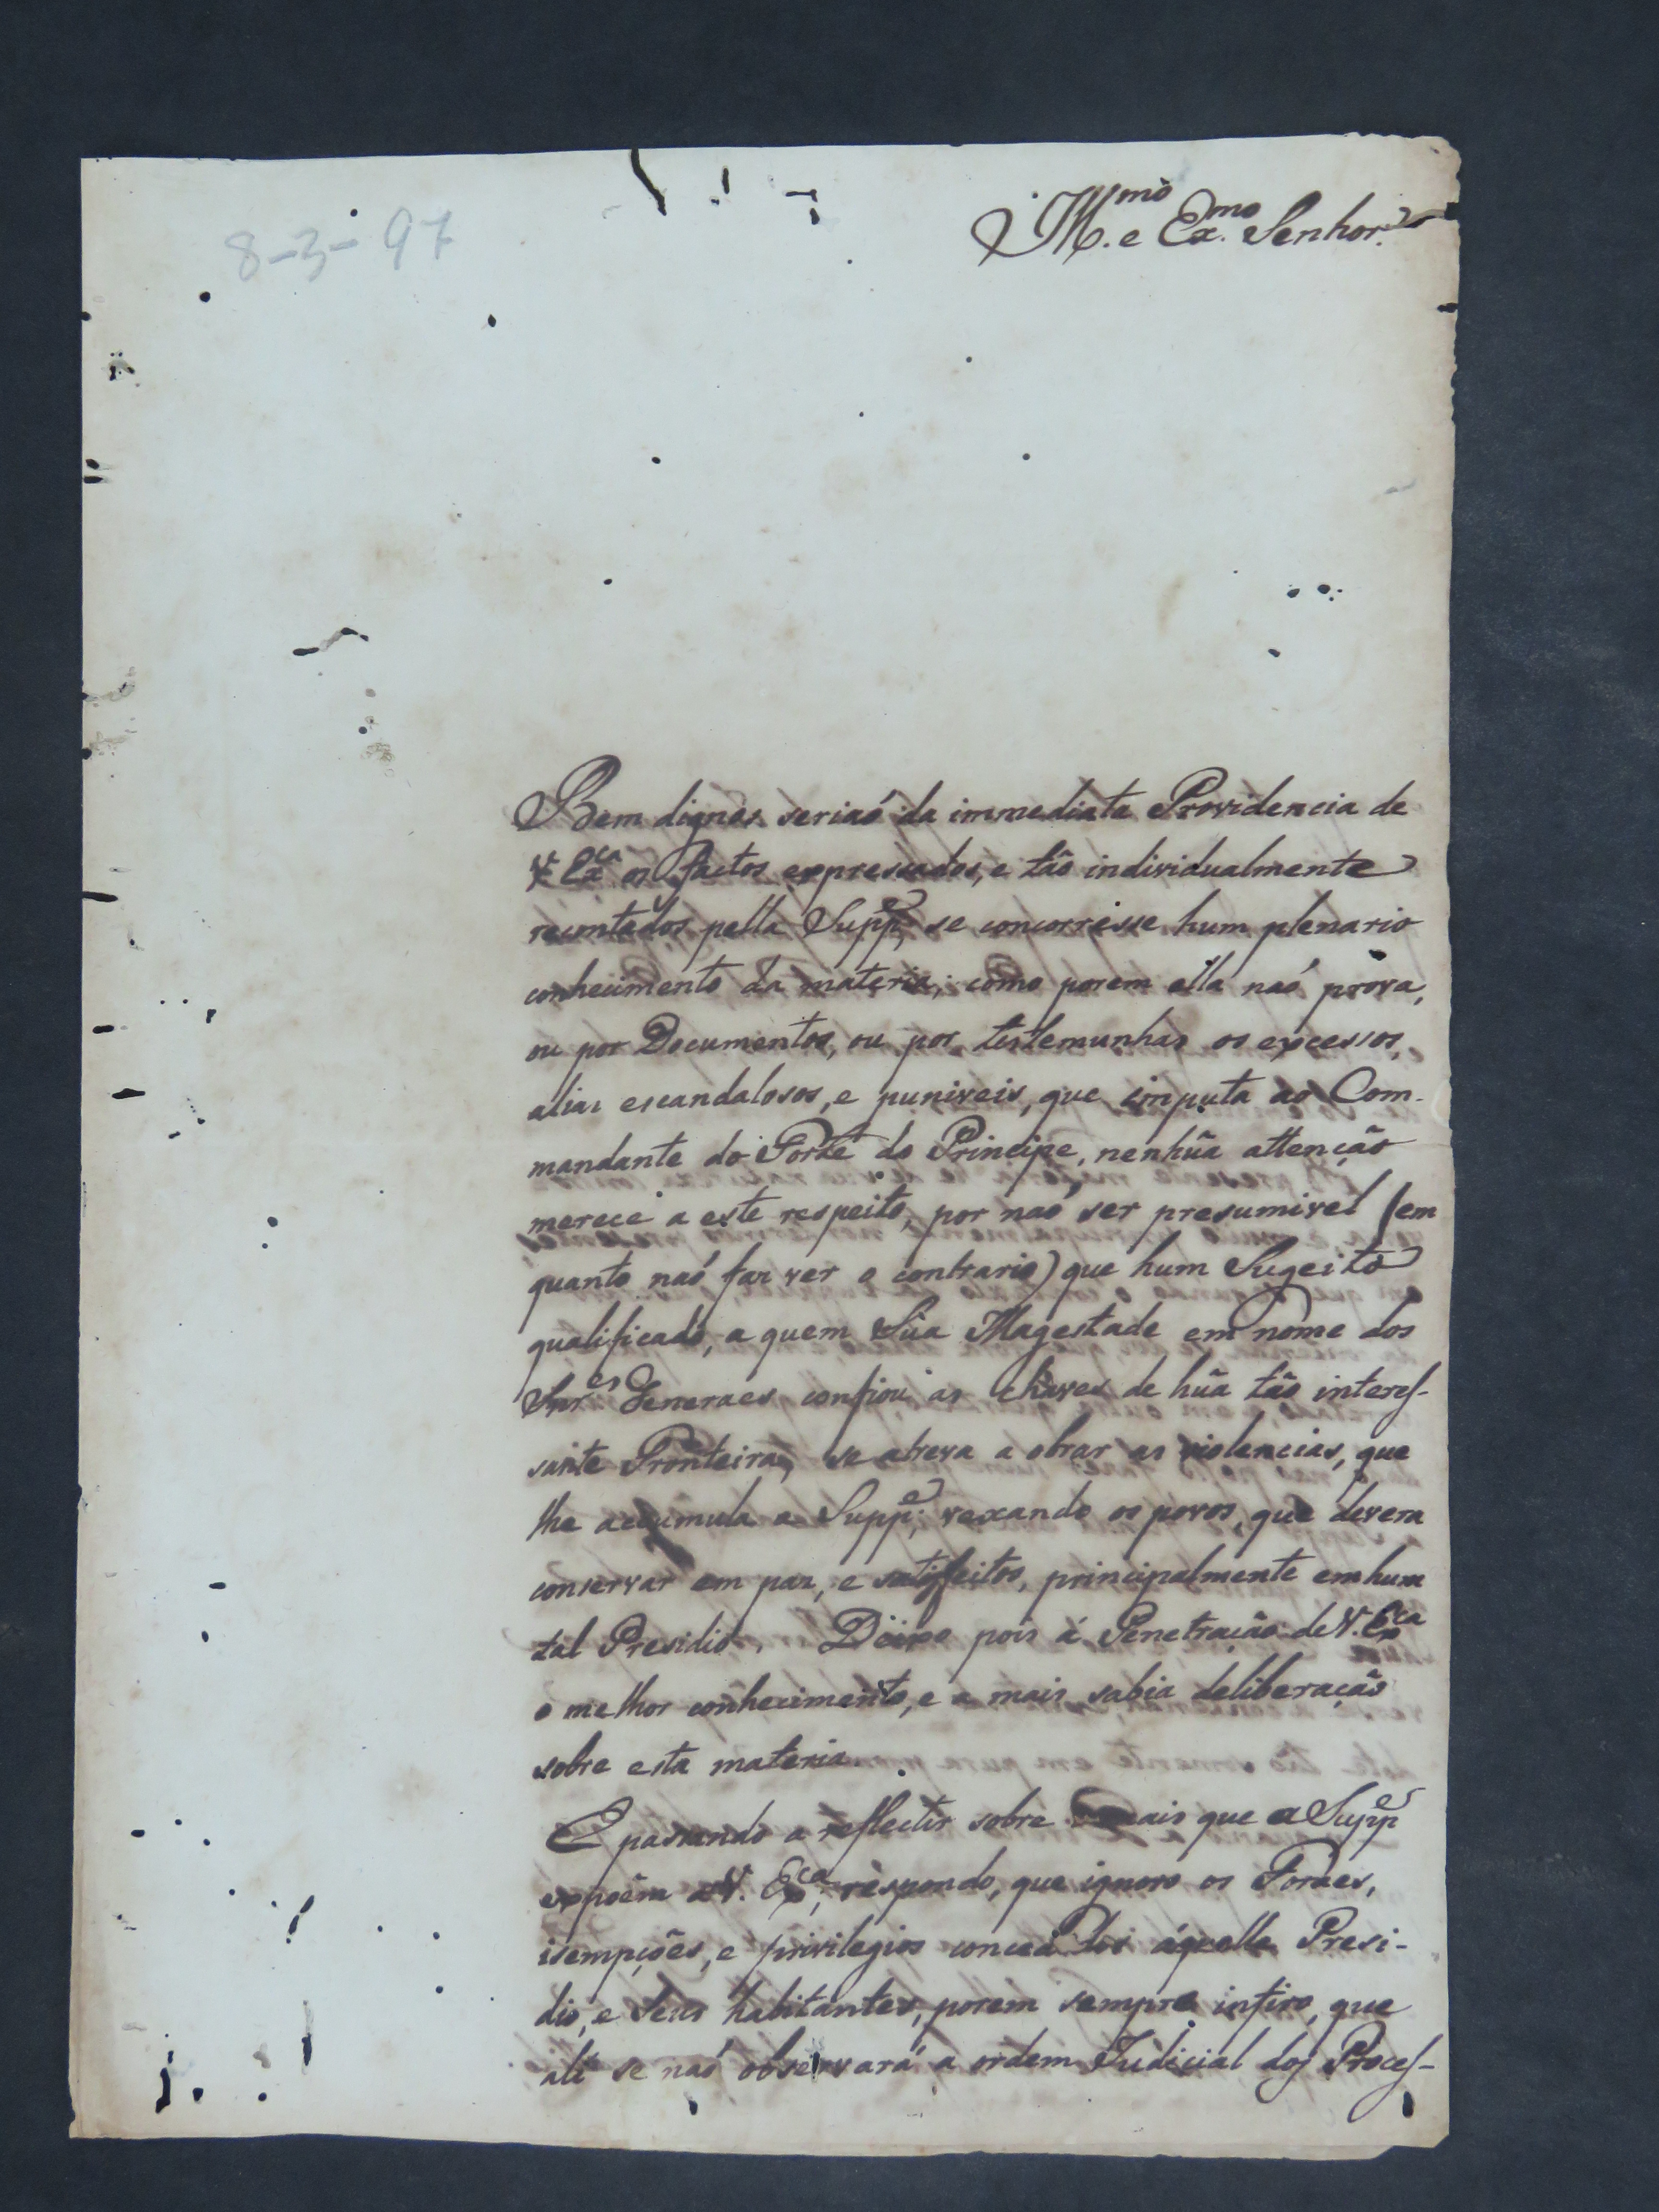 8-3-97
Ill.mo e Ex.mo Senhor.
Bem dignos seriaõ da immediata Providencia de
V. Ex.ca os factos expressados, e tão individualmente
recontados pella Supp.e, se concorresse hum plenario
conhecimento da materia; como porem ella naõ prova,
ou por Documentos, ou por testemunhas os excessos,
alias escandalosos, e puniveis, que imputa ao Com-
mandante do Forte do Principe, nenhũa attenção
merece a este respeito, por naõ ser presumivel (em
quanto naõ faz ver o contrario) que hum Sugeito
qualificado, a quem Sua Magestade em nome dos
Snr.es Generaes confiou as chaves de hũa tão interes-
sante Fronteira, se atreva a obrar as violencias, que
lhe accumula a Supp.e; vexando os povos, que devera
conservar em paz, e satisfeitos, principalmente em hum
tal Presidio. Deixo pois á Penetração de V. Ex.ca
o melhor conhecimento, e a mais sabia deliberação
sobre esta materia.
E passando a reflectir sobre o mais que a Supp.e
expoêm a V. Ex.ca, respondo, que ignoro os Foraes,
isempções, e privilegios concedidos áquelle Presi-
dio, e seus habitantes, porem sempre infiro, que
ali se naõ observará a ordem Judicial dos Proces-